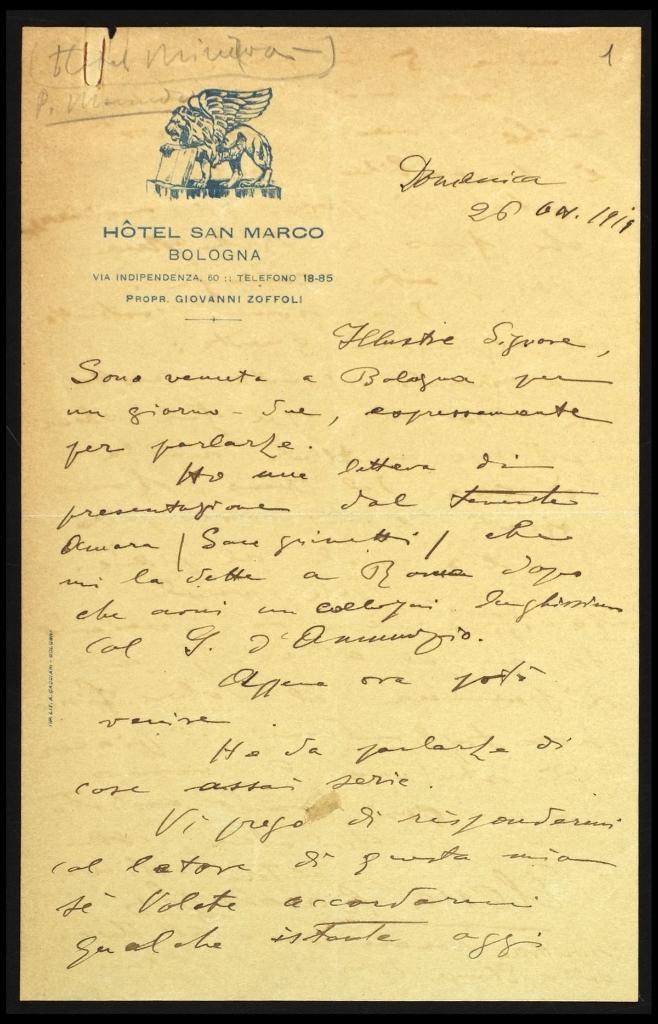 (Hotel Minerva —)
P.
1
HÔTEL SAN MARCO
BOLOGNA
VIA INDIPENDENZA, 60 :: TELEFONO 18-85
PROPR. GIOVANNI ZOFFOLI
Domenica
26 Ott. 1919
Illustre Signore,
Sono venuta a Bologna per
un giorno - due, espressamente
per parlarLe.
Ho una lettera di
presentazione dal tenente
che
mi la dette a Roma dopo
che avevi un colloqui lunghissimo
col G. d'Annunzio.
Appena ora potei
venire.
Ho da parlarLe di
cose assai serie.
Vi prego di rispondermi
col latore di questa mia
sè Volete accordarmi
qualche istante oggi